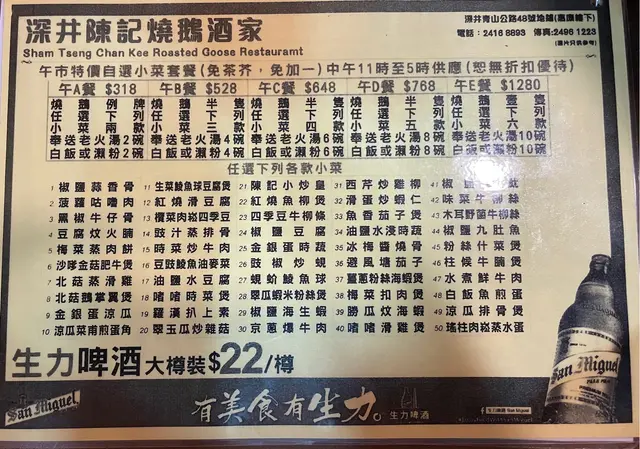 深井陳記燒鵝酒家
Sham Tseng Chan Kee Roasted Goose Restauramt
深井青山公路48號地舖(嘉康樓下)
電話：2416 8893 傳真:2496 1223
(圖片只供參考)
午市特價自選小菜套餐(免茶芥，免加一)中午11時至5時供應(恕無折扣優待)
午A餐 $318 午B餐 $528 午C餐 $648 午D餐 $768 午E餐 $1280
燒鵝例牌 燒鵝半隻 燒鵝半隻 燒鵝半隻 燒鵝壹隻
任選下列 任選下列 任選下列 任選下列 任選下列
小菜兩款 小菜三款 小菜四款 小菜五款 小菜六款
奉送老火湯2碗 奉送老火湯4碗 奉送老火湯6碗 奉送老火湯8碗 奉送老火湯10碗
白飯或瀨粉2碗 白飯或瀨粉4碗 白飯或瀨粉6碗 白飯或瀨粉8碗 白飯或瀨粉10碗
任選下列各款小菜
1 椒鹽蒜香骨 11 生菜鯪魚球豆腐煲 21 陳記小炒皇 31 西芹炒雞柳 41 椒鹽
2 菠蘿咕嚕肉 12 紅燒滑豆腐 22 紅燒魚柳煲 32 滑蛋炒蝦仁 42 味菜牛柳絲
3 黑椒牛仔骨 13 欖菜肉崧四季豆 23 四季豆牛柳條 33 魚香茄子煲 43 木耳野菌牛柳絲
4 豆腐炆火腩 14 豉汁蒸排骨 24 椒鹽豆腐 34 油鹽水浸時蔬 44 椒鹽九肚魚
5 梅菜蒸肉餅 15 時菜炒牛肉 25 金銀蛋時蔬 35 冰梅醬燒骨 45 粉絲什菜煲
6 沙嗲金菇肥牛煲 16 豆豉鯪魚油麥菜 26 豉椒炒蜆 36 避風塘茄子 46 柱候牛腩煲
7 北菇蒸滑雞 17 油鹽水豆腐 27 蜆蚧鯪魚球 37 薑蔥粉絲海蝦煲 47 水煮鮮牛肉
8 北菇鵝掌翼煲 18 啫啫時菜煲 28 翠瓜蝦米粉絲煲 38 梅菜扣肉煲 48 白飯魚煎蛋
9 金銀蛋涼瓜 19 羅漢扒上素 29 椒鹽海生蝦 39 勝瓜炆海蝦 49 涼瓜排骨煲
10 涼瓜菜甫煎蛋角 20 翠玉瓜炒雜菇 30 京蔥爆牛肉 40 啫啫滑雞煲 50 瑤柱肉崧蒸水蛋
生力啤酒 大樽裝 $22/樽
San Miguel
有美食有生力。
生力啤酒
生力啤酒 San Miguel
San Miguel
PALE PILSEN